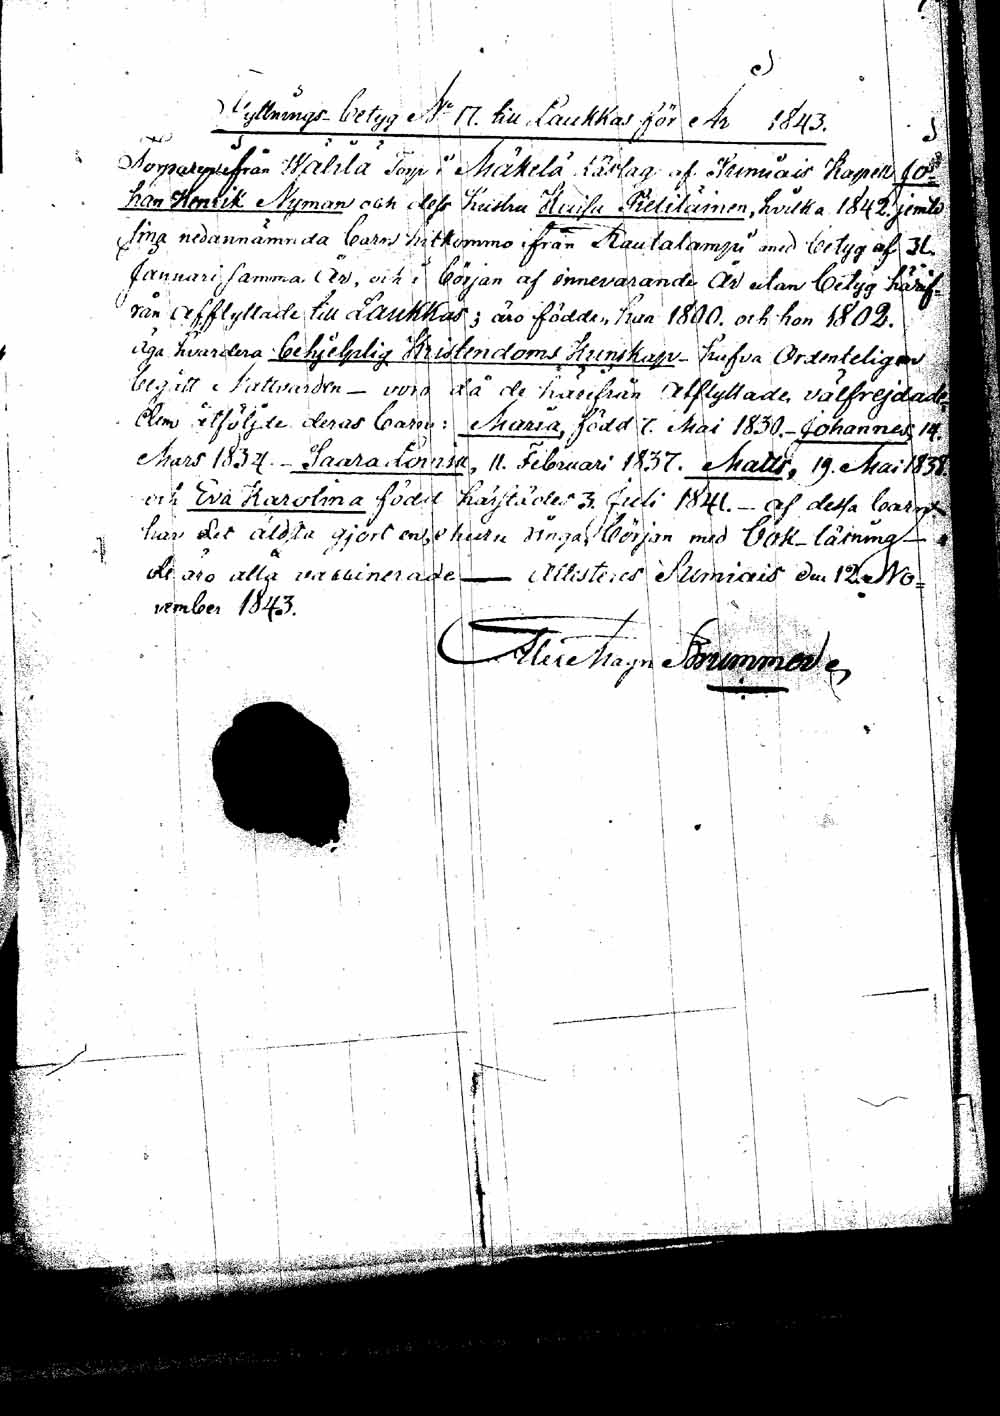 Flyttnings-betyg No 17. till Laukkas för År 1843.
Torparen från Wählä Torp i Mäkelä Läslag af Sumiais Kapell Jo=
han Henrik Nyman och dess hustru Kaisa Pietiläinen, hvilka 1842. jemte
sina nedannämnda barn hitkommo från Rautalampi med betyg af 31.
Januari samma År, och i början af innevarande År utan betyg härif=
rån afflyttade till Laukkas; äro födde, han 1800. och hon 1802.
äga hvardera behjelplig Kristendoms Kunskap - hafva Ordenteligen
begått Nattvarden - voro då de härifrån afflyttade, välfrejdade.
Dem åtföljde deras barn: Maria, född 7. Mai 1830. - Johannes, 14.
Mars 1834. - Saara Lovisa, 11. Februari 1837. Matts, 19. Mai 1838.
och Eva Karolina född härstädes 3. Juli 1841. - af dessa barn
har det äldsta gjort en, ehuru ringa, början med bok-läsning -
de äro alla vaccinerade - Attesteras Sumiais den 12. No=
vember 1843.
Alex Magn Brummer